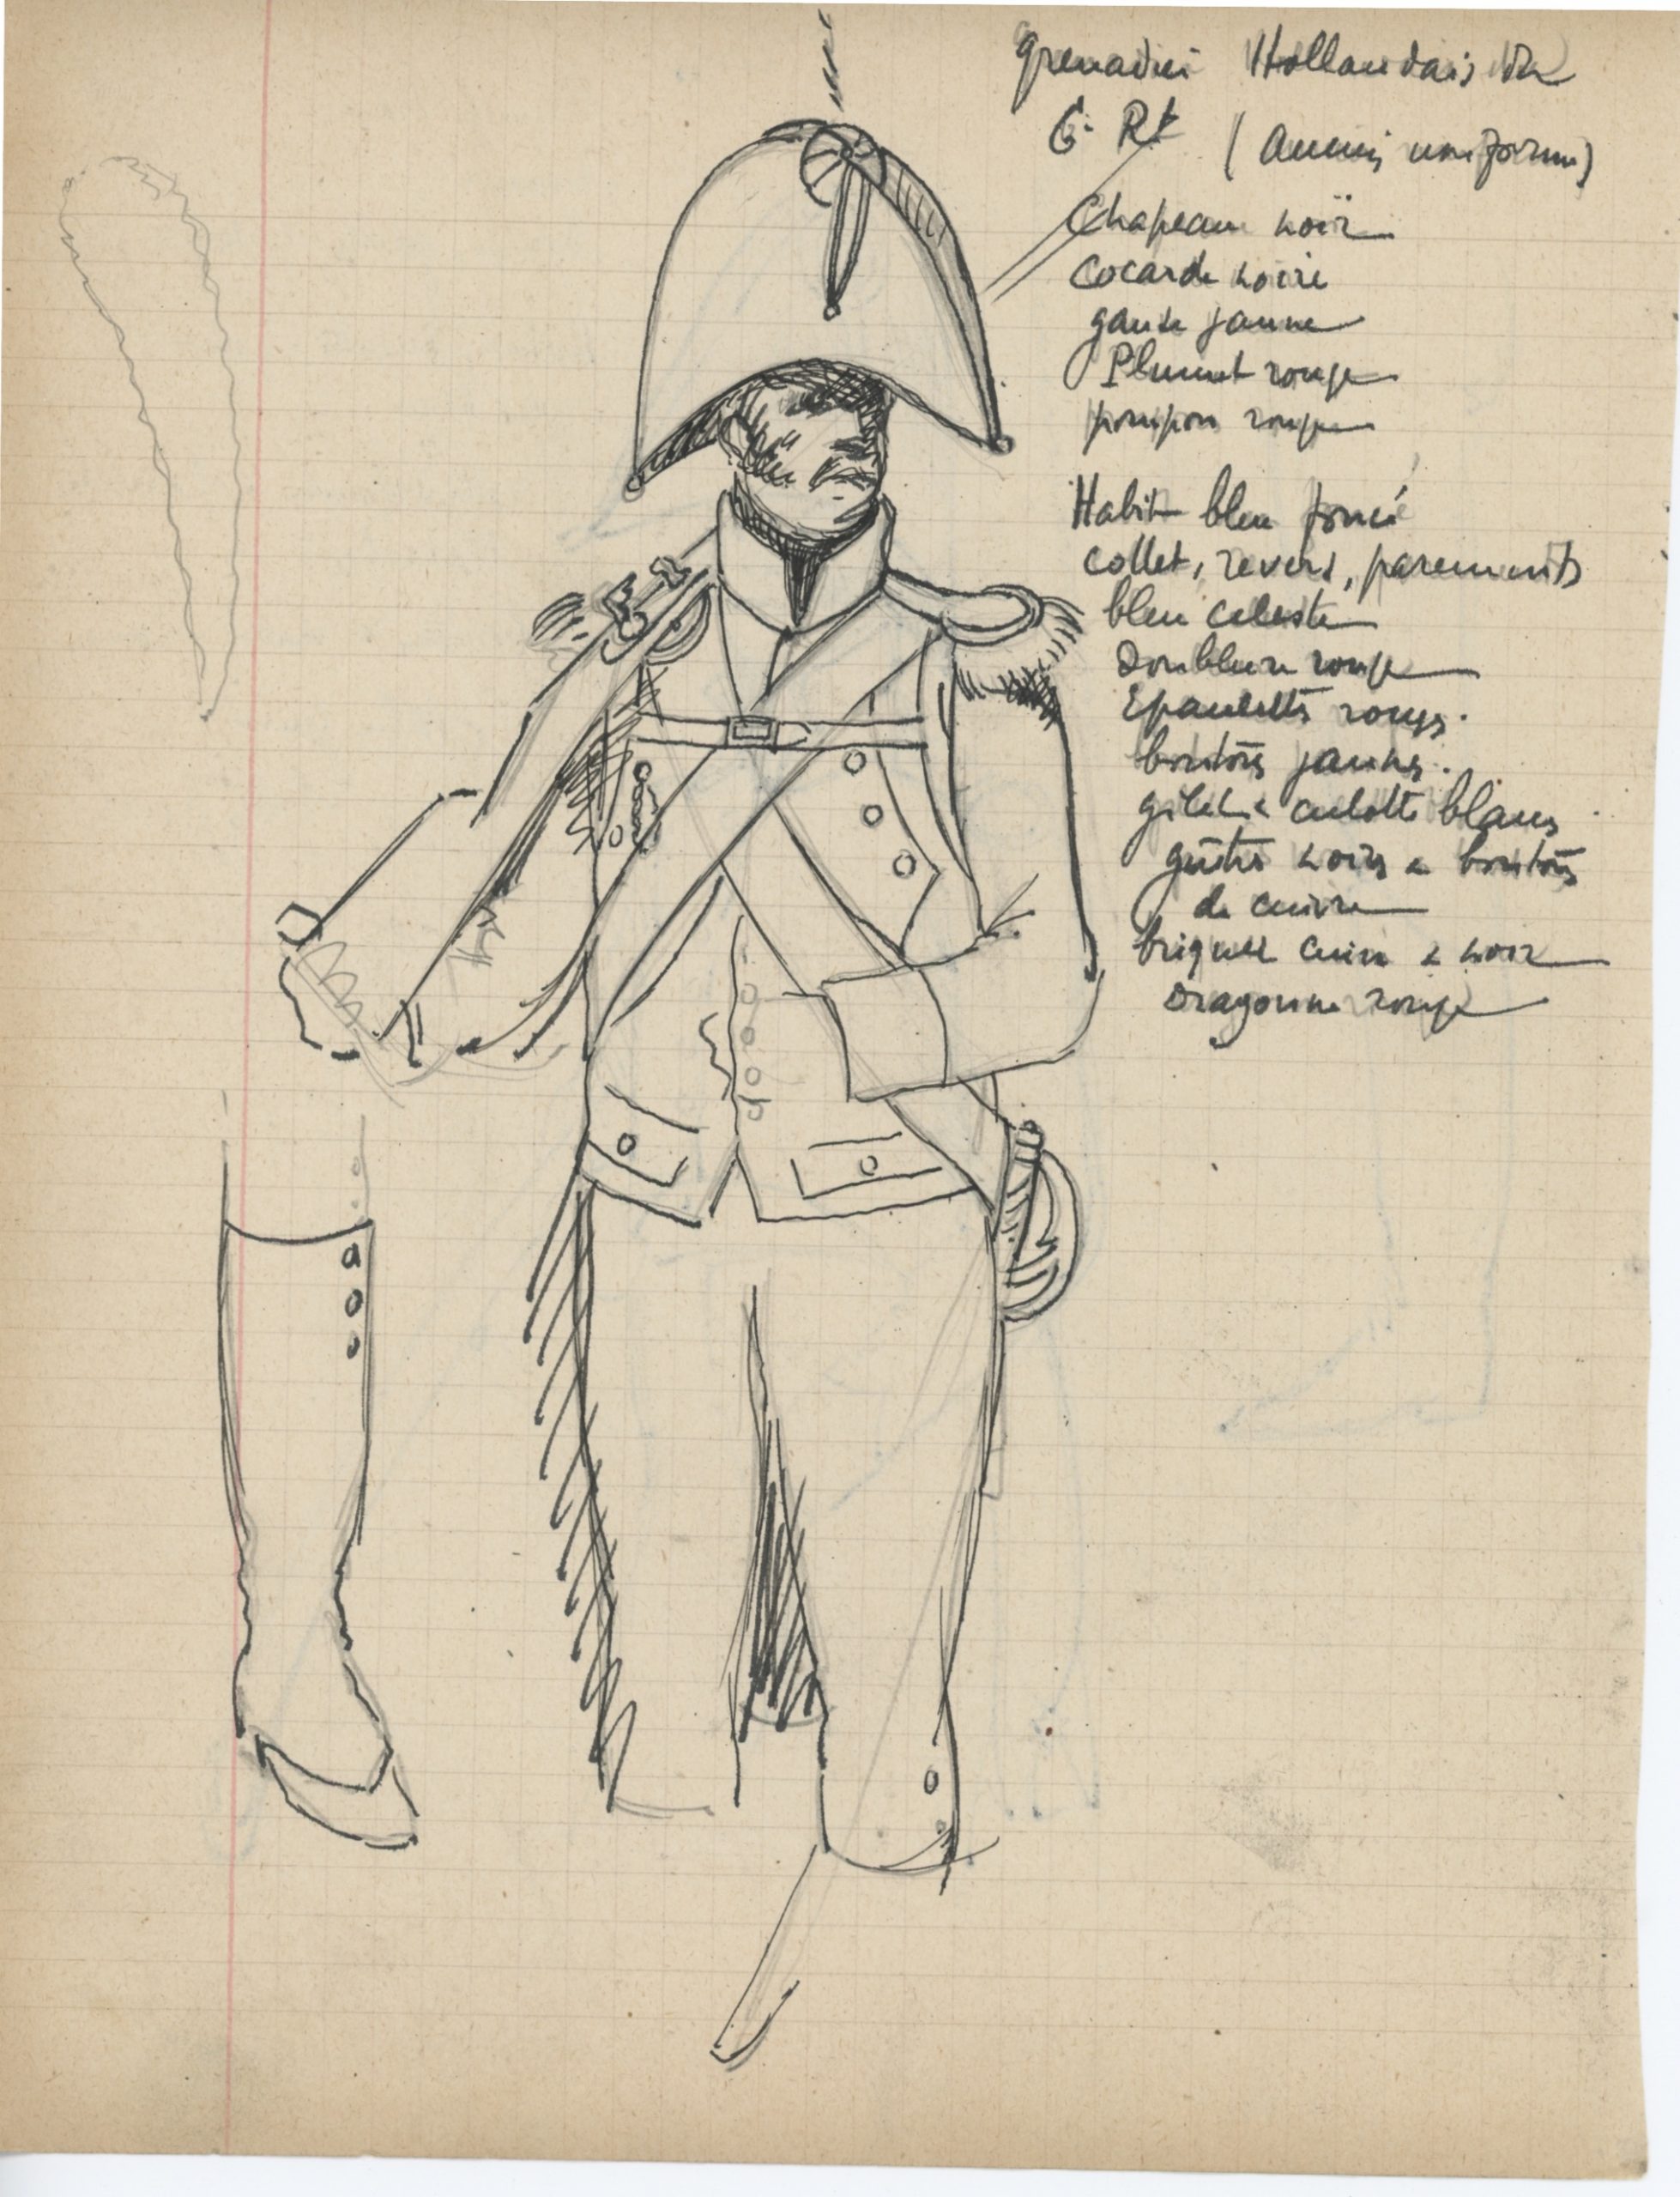 grenadier Hollandais du
6e Rt (ancien uniforme)
Chapeau noir
Cocarde noire
ganse jaune
Plumet rouge
pompon rouge
Habit bleu foncé
collet, revers, parements
bleu celeste
Doublure rouge
Epaulettes rouges.
boutons jaunes.
gilet & culotte blancs
guêtres noires & boutons
de cuivre
briquet cuivre & noir
Dragonne rouge